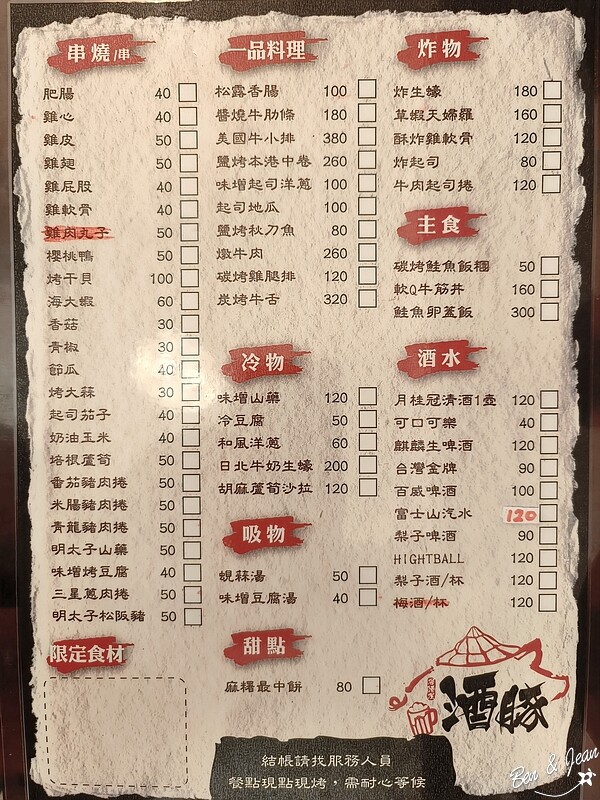 串燒/串
肥腸 40
雞心 40
雞皮 50
雞翅 50
雞屁股 40
雞軟骨 40
雞肉丸子 50
櫻桃鴨 50
烤干貝 100
海大蝦 60
香菇 30
青椒 30
節瓜 40
烤大蒜 30
起司茄子 40
奶油玉米 40
培根蘆筍 50
番茄豬肉捲 50
米腸豬肉捲 50
青龍豬肉捲 50
明太子山藥 50
味增烤豆腐 40
三星蔥肉捲 50
明太子松阪豬 50
限定食材
一品料理
松露香腸 100
醬燒牛肋條 180
美國牛小排 380
鹽烤本港中卷 260
味增起司洋蔥 100
起司地瓜 100
鹽烤秋刀魚 80
燉牛肉 260
碳烤雞腿排 120
炭烤牛舌 320
冷物
味增山藥 120
冷豆腐 50
和風洋蔥 60
日北牛奶生蠔 200
胡麻蘆筍沙拉 120
吸物
蜆蒜湯 50
味增豆腐湯 40
甜點
麻糬最中餅 80
炸物
炸生蠔 180
草蝦天婦羅 160
酥炸雞軟骨 120
炸起司 80
牛肉起司捲 120
主食
碳烤鮭魚飯糰 50
軟Q牛筋丼 160
鮭魚卵蓋飯 300
酒水
月桂冠清酒1壺 120
可口可樂 40
麒麟生啤酒 120
台灣金牌 90
百威啤酒 100
富士山汽水 120
梨子啤酒 90
HIGHTBALL 120
梨子酒/杯 120
梅酒/杯 120
酒豚
結帳請找服務人員
餐點現點現烤，需耐心等候
Ben & Jean